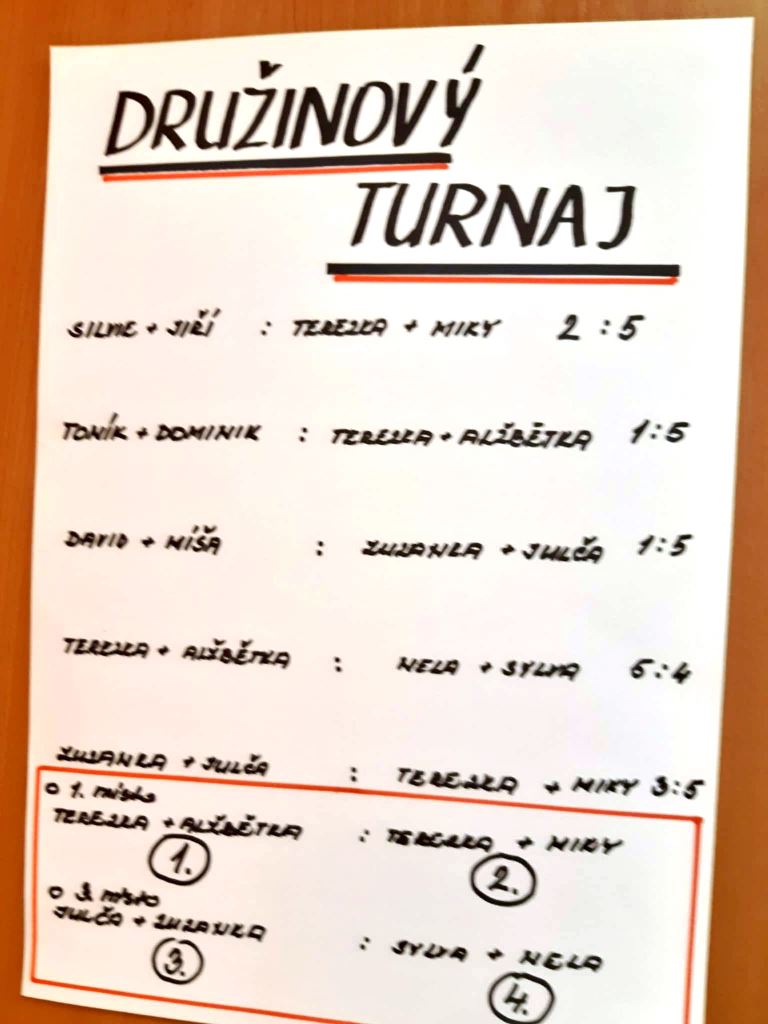 DRUŽINOVÝ
TURNAJ
SILVIE + JIŘÍ : TEREZKA + MIKY 2 : 5
TONÍK + DOMINIK : TEREZKA + ALŽBĚTKA 1 : 5
DAVID + MÍŠA : ZUZANKA + JULČA 1 : 5
TEREZKA + ALŽBĚTKA : NELA + SYLVA 5 : 4
ZUZANKA + JULČA : TEREZKA + MIKY 3 : 5
O 1. místo
TEREZKA + ALŽBĚTKA : TEREZKA + MIKY
1. 2.
O 3. místo
JULČA + ZUZANKA : SYLVA + NELA
3. 4.